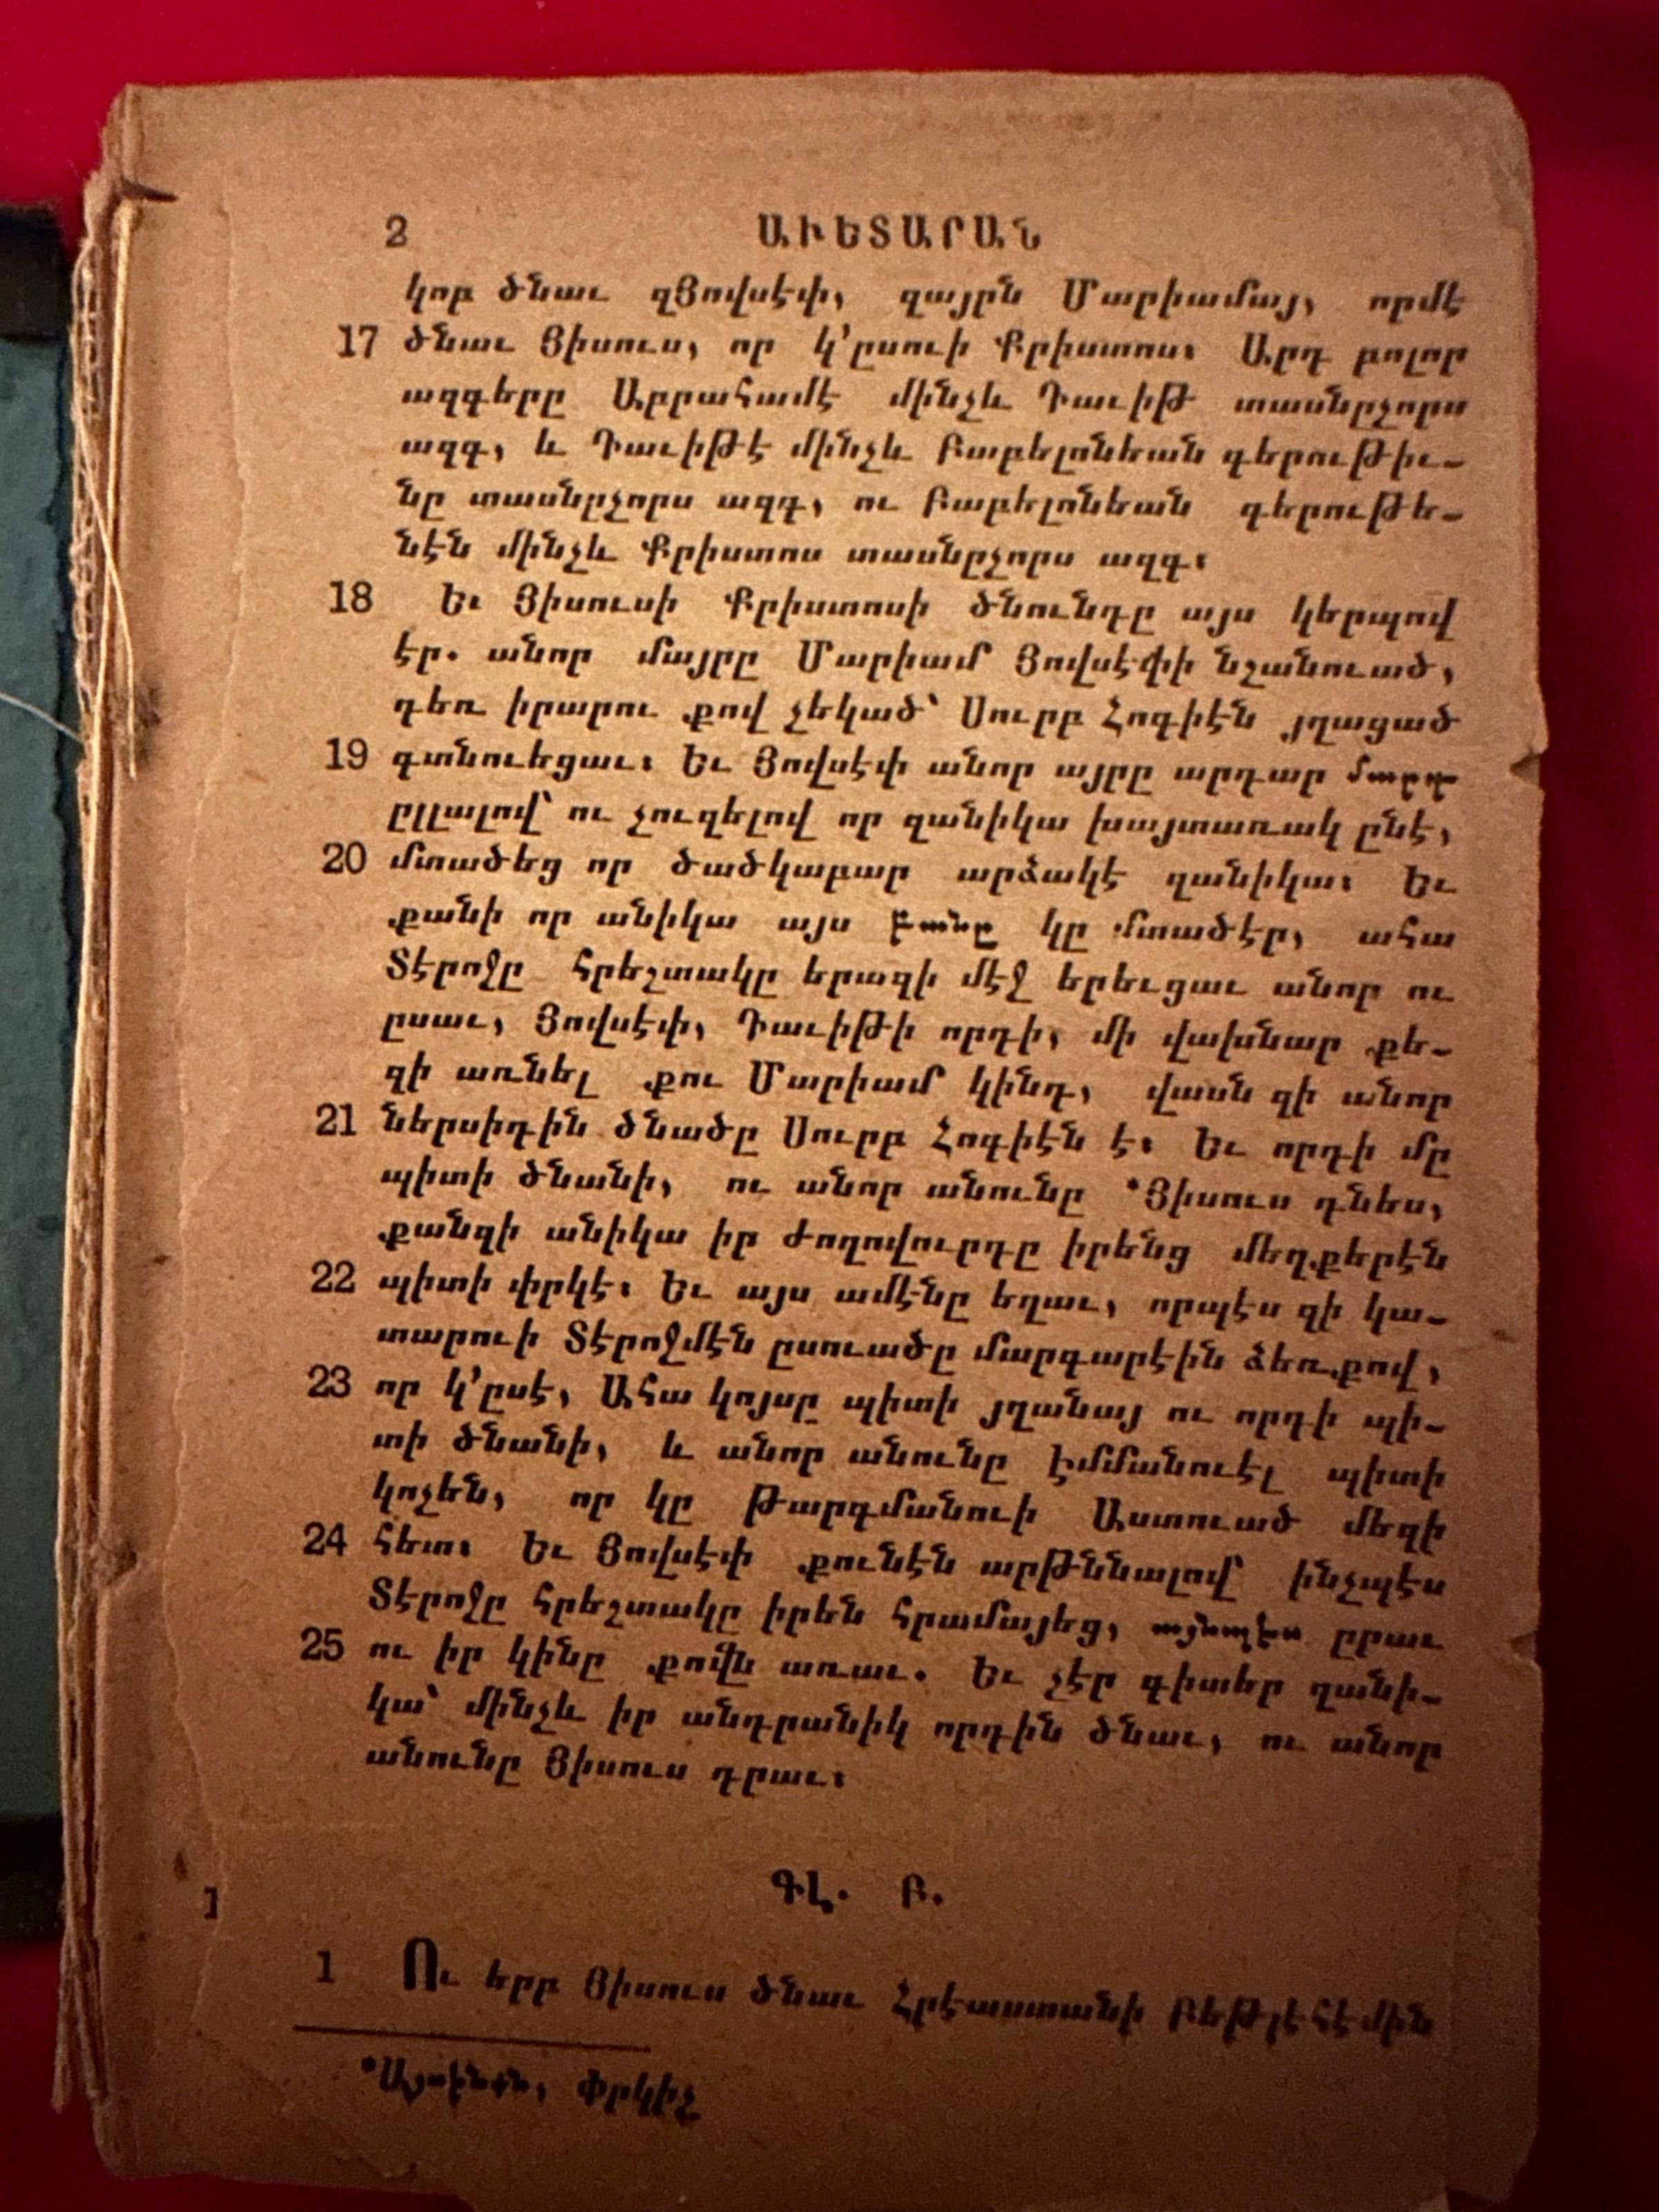 2 ԱՒԵՏԱՐԱՆ
կոբ ծնաւ զՅովսէփ, զայրն Մարիամայ, որմէ
17 ծնաւ Յիսուս, որ կ՚ըսուի Քրիստոս։ Արդ բոլոր
ազգերը Աբրահամէ մինչև Դաւիթ տասնըչորս
ազգ, և Դաւիթէ մինչև Բաբելոնեան գերութիւ-
նը տասնըչորս ազգ, ու Բաբելոնեան գերութե-
նէն մինչև Քրիստոս տասնըչորս ազգ։
18 Եւ Յիսուսի Քրիստոսի ծնունդը այս կերպով
էր. անոր մայրը Մարիամ Յովսէփի նշանուած,
դեռ իրարու քով չեկած՝ Սուրբ Հոգիէն յղացած
19 գտնուեցաւ։ Եւ Յովսէփ անոր այրը արդար մարդ
ըլլալով՝ ու չուզելով որ զանիկա խայտառակ ընէ,
20 մտածեց որ ծածկաբար արձակէ զանիկա։ Եւ
քանի որ անիկա այս բանը կը մտածէր, ահա
Տէրոջը հրեշտակը երազի մէջ երեւցաւ անոր ու
ըսաւ, Յովսէփ, Դաւիթի որդի, մի վախնար քե-
զի առնել քու Մարիամ կինդ, վասն զի անոր
21 ներսիդին ծնածը Սուրբ Հոգիէն է։ Եւ որդի մը
պիտի ծնանի, ու անոր անունը *Յիսուս դնես,
քանզի անիկա իր ժողովուրդը իրենց մեղքերէն
22 պիտի փրկէ։ Եւ այս ամէնը եղաւ, որպէս զի կա-
տարուի Տէրոջմէն ըսուածը մարգարէին ձեռքով,
23 որ կ՚ըսէ, Ահա կոյսը պիտի յղանայ ու որդի պի-
տի ծնանի, և անոր անունը Էմմանուէլ պիտի
կոչեն, որ կը թարգմանուի Աստուած մեզի
24 հետ։ Եւ Յովսէփ քունէն արթննալով՝ ինչպէս
Տէրոջը հրեշտակը իրեն հրամայեց, այնպէս ըրաւ
25 ու իր կինը քովն առաւ. Եւ չէր գիտեր զանի-
կա՝ մինչև իր անդրանիկ որդին ծնաւ, ու անոր
անունը Յիսուս դրաւ։
ԳԼ. Բ.
1
1 Ու երբ Յիսուս ծնաւ Հրէաստանի Բեթլէհէմին
*Այսինքն, Փրկիչ